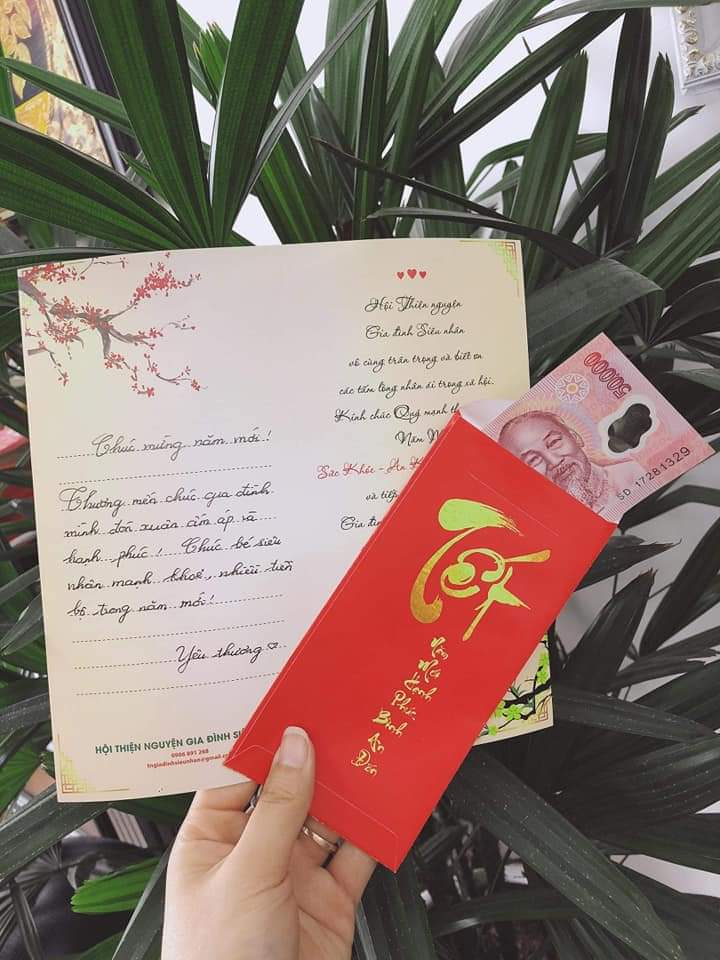 Chúc mừng năm mới.!
Thương mến chúc gia đình
mình đón xuân ấm áp và
hạnh phúc! Chúc bé siêu
nhân mạnh khoẻ, nhiều tiến
bộ trong năm mới!
Yêu thương ♡
HỘI THIỆN NGUYỆN GIA ĐÌNH
0906 891 268
Hội Thiện nguyện
Gia đình Siêu nhân
vô cùng trân trọng và biết ơn
các tấm lòng nhân ái trong xã hội.
Kính chúc Quý mạnh
Năm
Sức Khỏe - An
và tiếp
Gia đình
50000
SD 17281329
Tết
Năm
Mới
Hạnh
Phúc
Bình
An
Đến